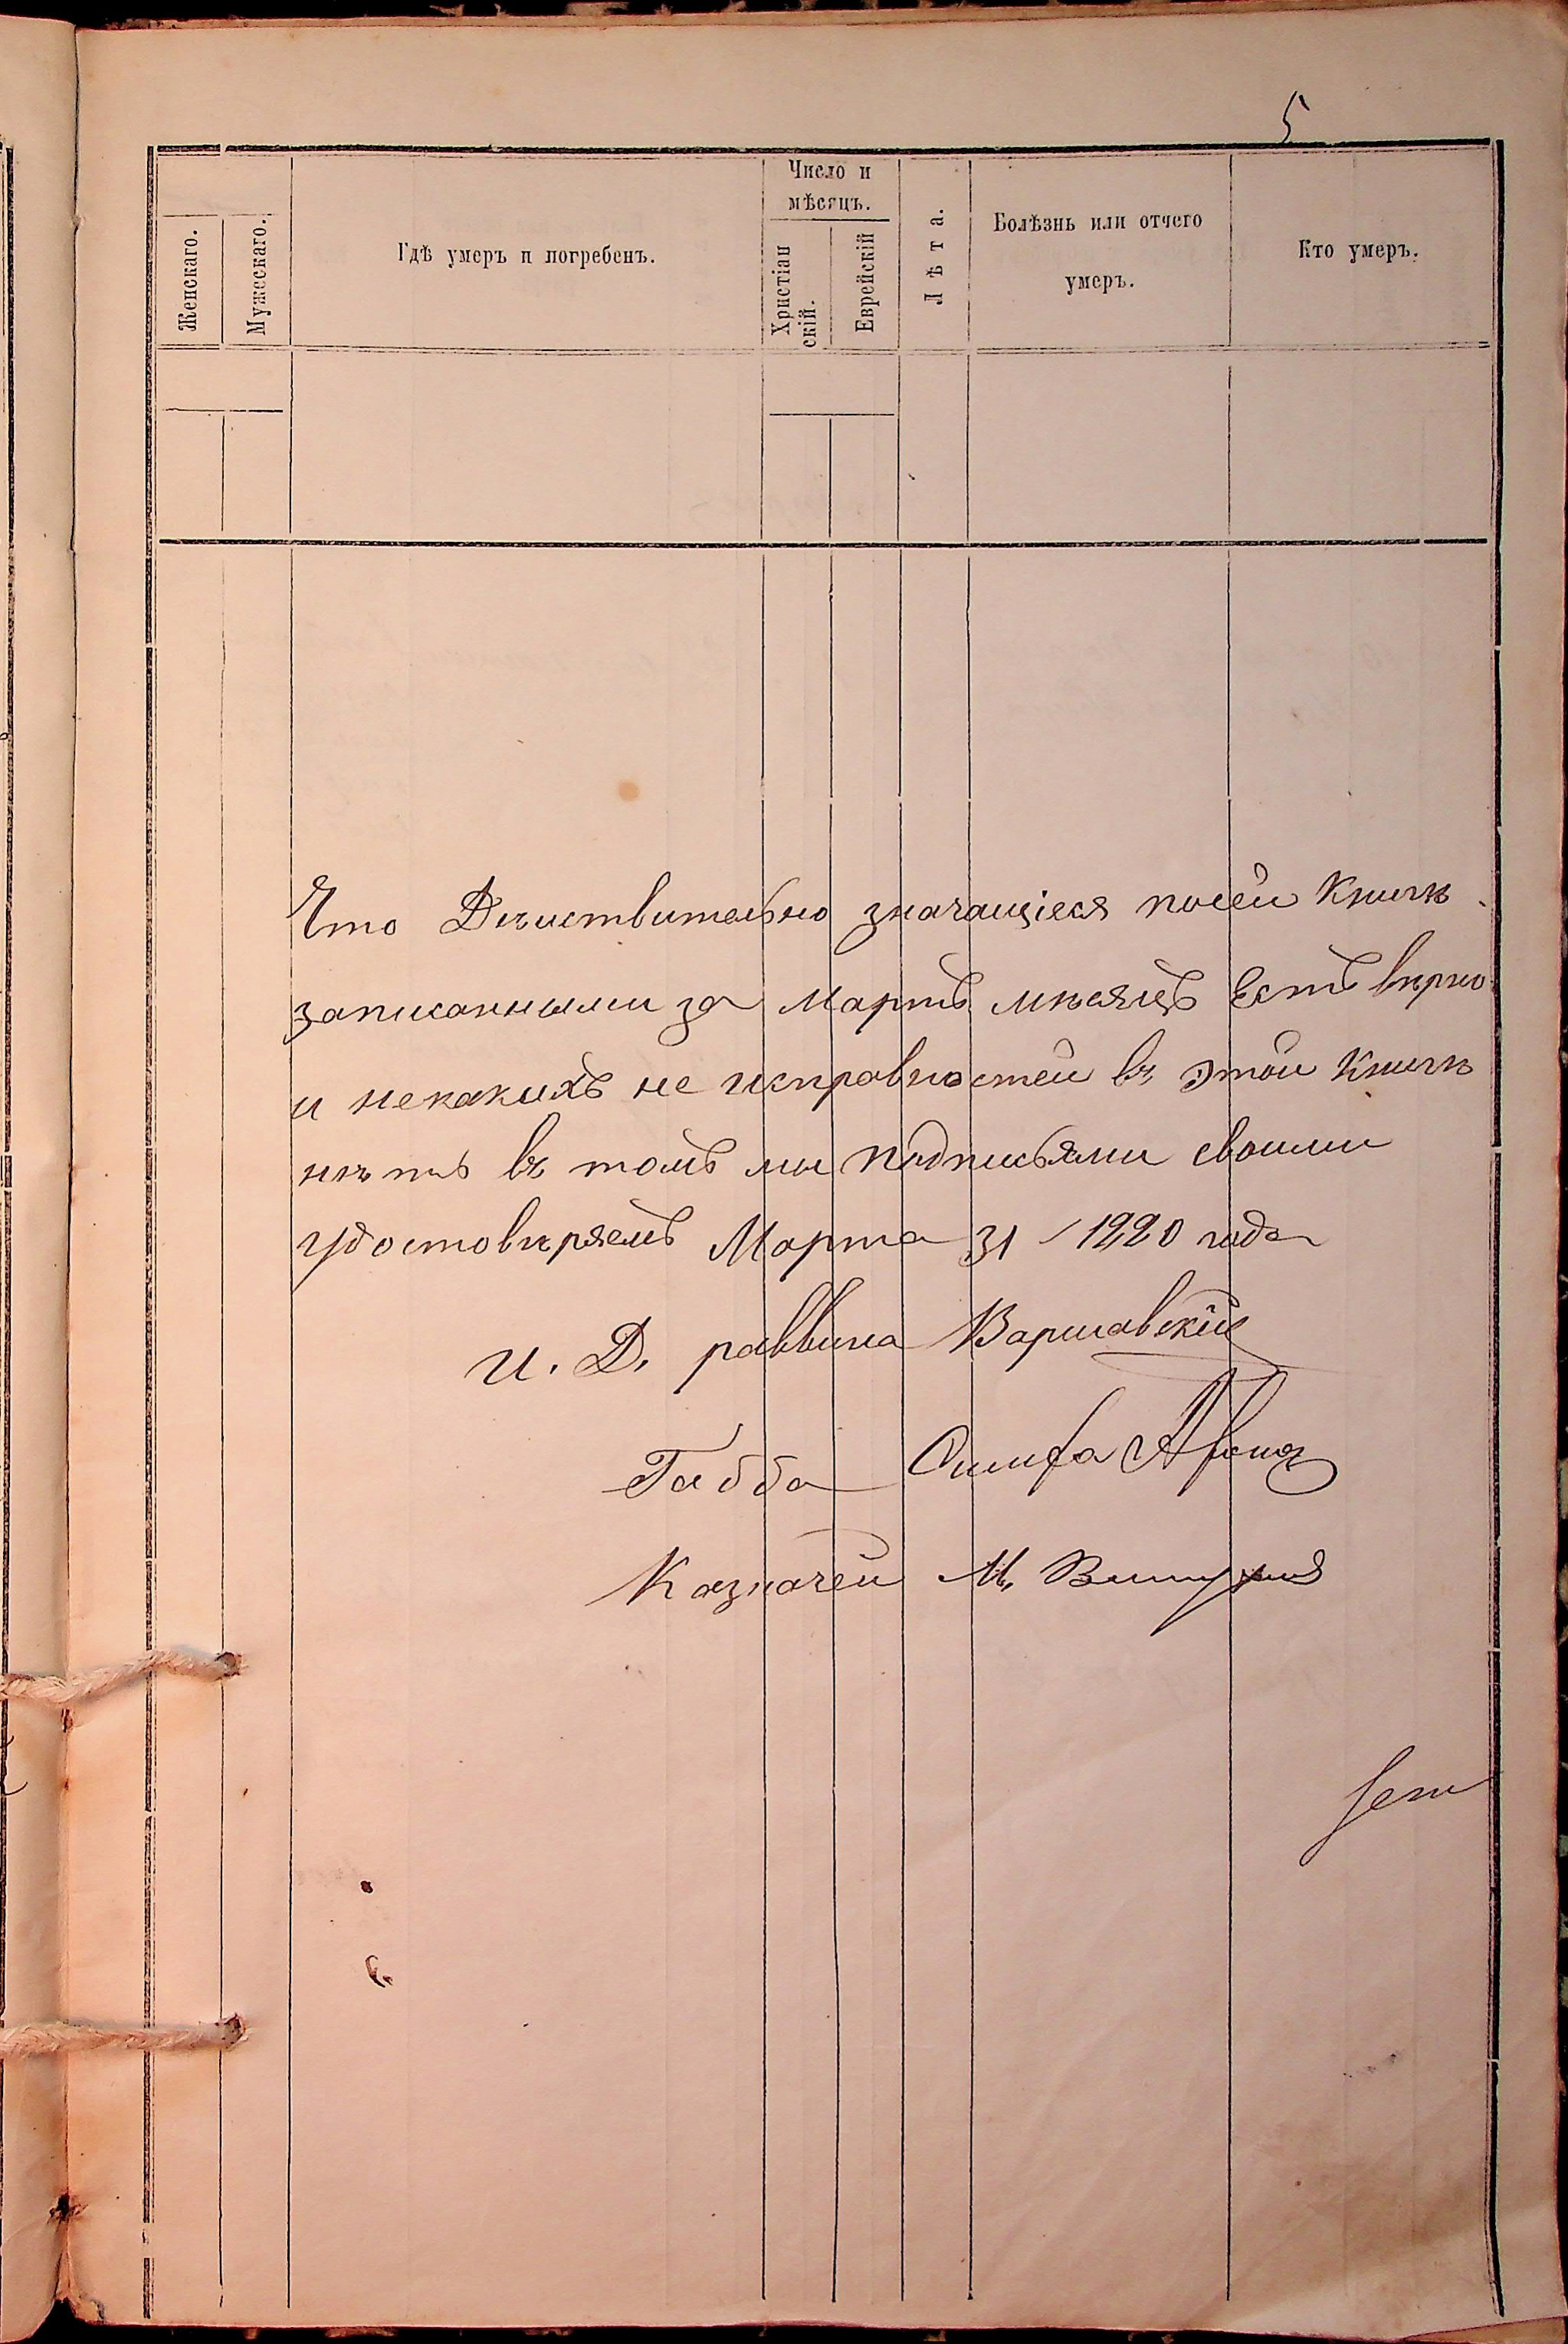 5
Число и
мѣсяцъ.
Женскаго.
Мужескаго.
Гдѣ умеръ и погребенъ.
Христіан
скій.
Еврейскій
Лѣта.
Болѣзнь или отчего
умеръ.
Кто умеръ.
Что Дѣиствительно значащіеся посеи Книгѣ
записанными за Мартъ мѣсяцъ Есть вѣрно
и некакихъ не исправностей въ этой Книгѣ
нѣтъ въ томъ мы подписьями своими
удостовѣряемъ Марта 31 1920 года
И. Д. раввина Варшавскій
Габба
Казначеи М.